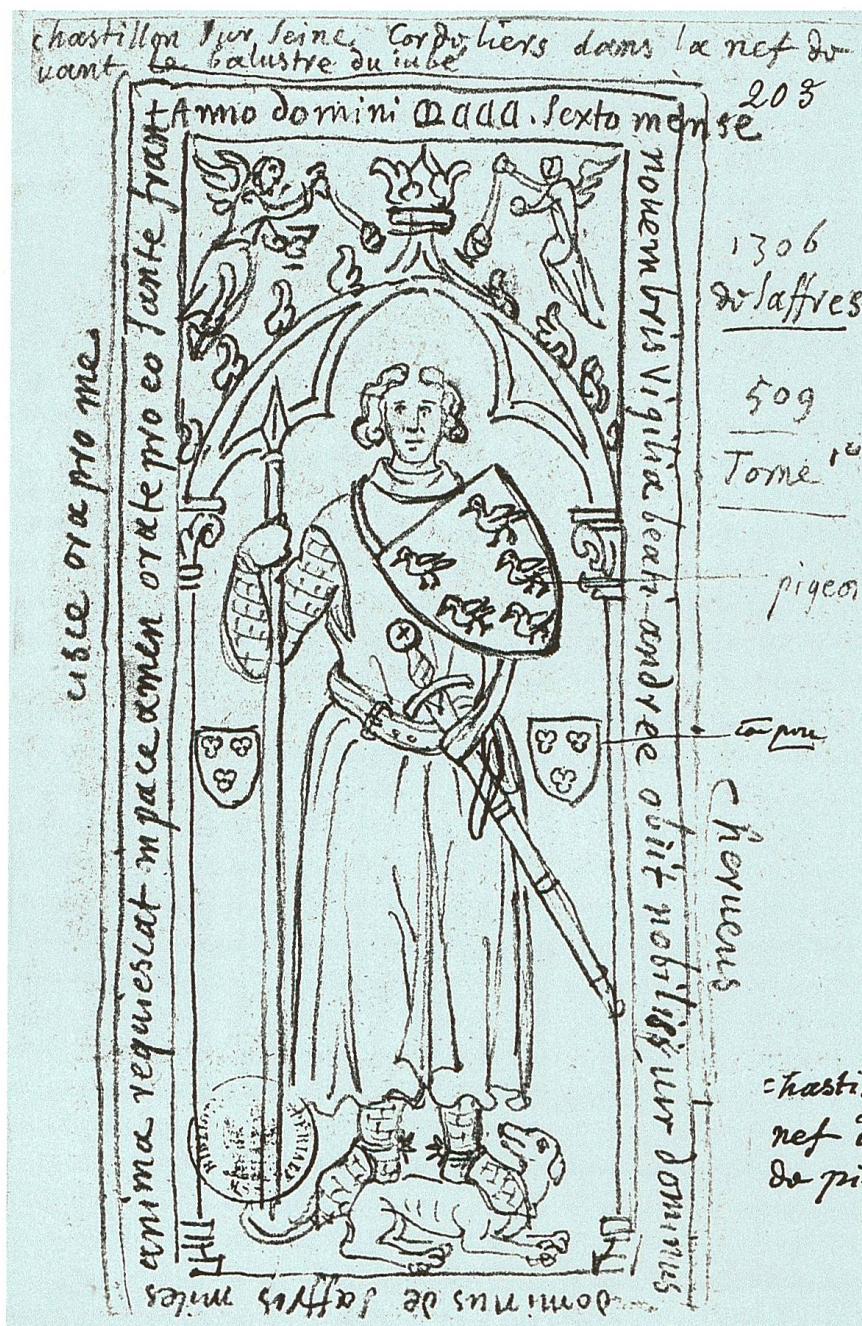 chastillon sur seine Cordeliers dans la nef de
vant le balustre du iubé
203
+ Anno domini MCCC. sexto mense
novembris vigilia beati andree obiit nobilis vir dominus
cherveus
dominus de saffris miles
anima requiescat in pace amen orate pro eo sante fran
cisce ora pro me
1306
de saffres
509
Tome 1er
pigeon
=hasti
nef
de pi